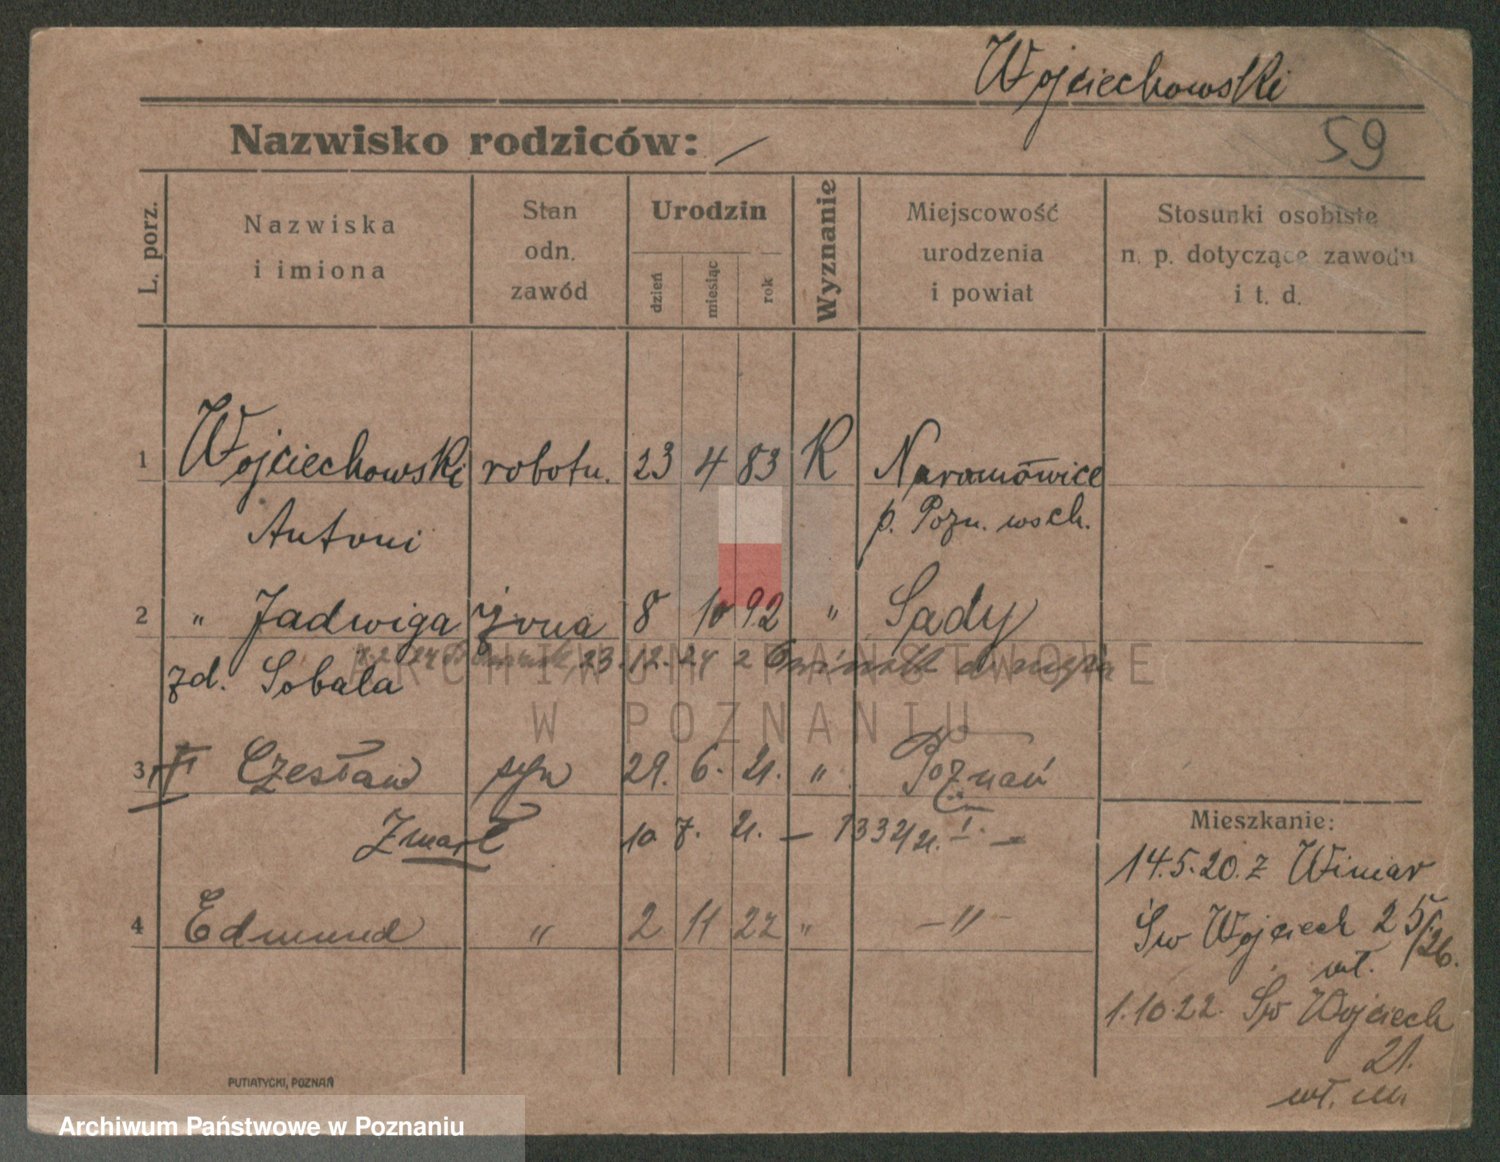 Wojciechowski
59
Nazwisko rodziców: /
L. porz.
Nazwiska i imiona
Stan odn. zawód
Urodzin
dzień
miesiąc
rok
Wyznanie
Miejscowość urodzenia i powiat
Stosunki osobiste n. p. dotyczące zawodu i t. d.
1 Wojciechowski robotn. 23 4 83 K Naramowice
Antoni p. Pozn. wsch.
2 " Jadwiga żona 8 10 92 " Sady
23.12.24 z
zd. Sobala
ARCHIWUM PAŃSTWOWE
W POZNANIU
3 Czesław syn 29. 6. 21. " Poznań
Zmarł 10 7. 21. — 1332/21. I. —
4 Edmund " 2 11 22 " —"—
Mieszkanie:
14.5.20. z Winiar
Św Wojciech 25/26.
wł.
1.10.22 Św Wojciech
21.
wł. m
PUTIATYCKI, POZNAŃ
Archiwum Państwowe w Poznaniu